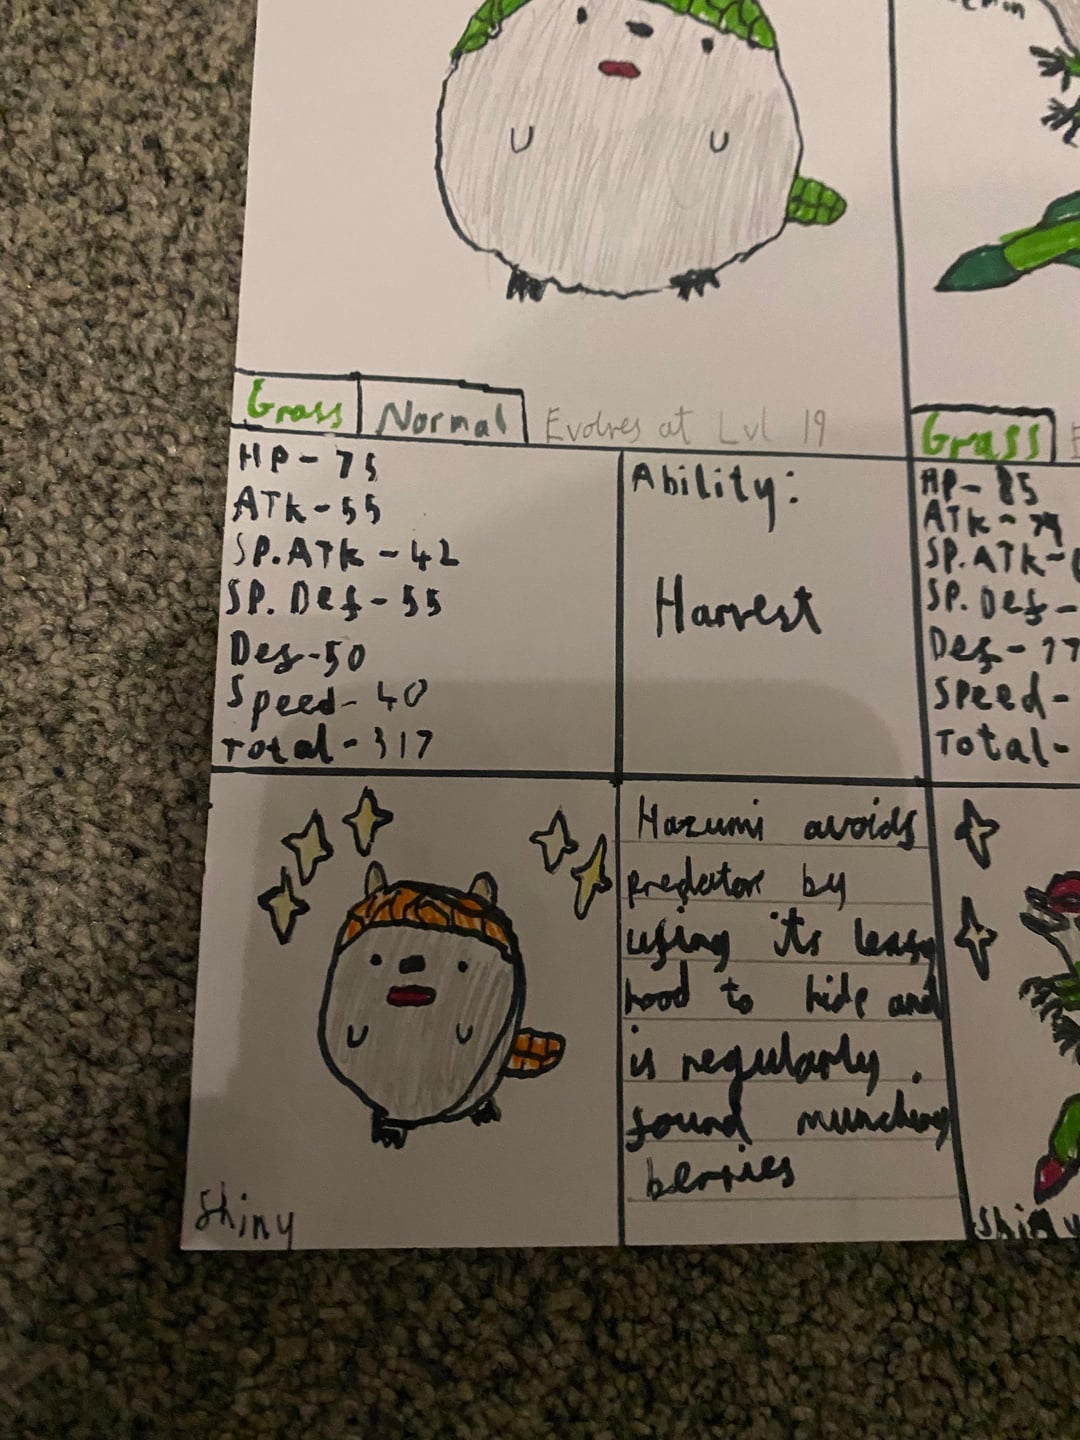 Grass
Normal
Evolves at Lvl 19
HP-75
ATk-55
SP.ATk-42
SP. Def-55
Def-50
Speed-40
Total-317
Ability:
Harvest
Shiny
Hazumi avoids
predator by
using its leafy
hood to hide and
is regularly
found munching
berries
Grass
HP-85
ATk-
SP.ATk-
SP. Def-
Def-77
Speed-
Total-
Shiny